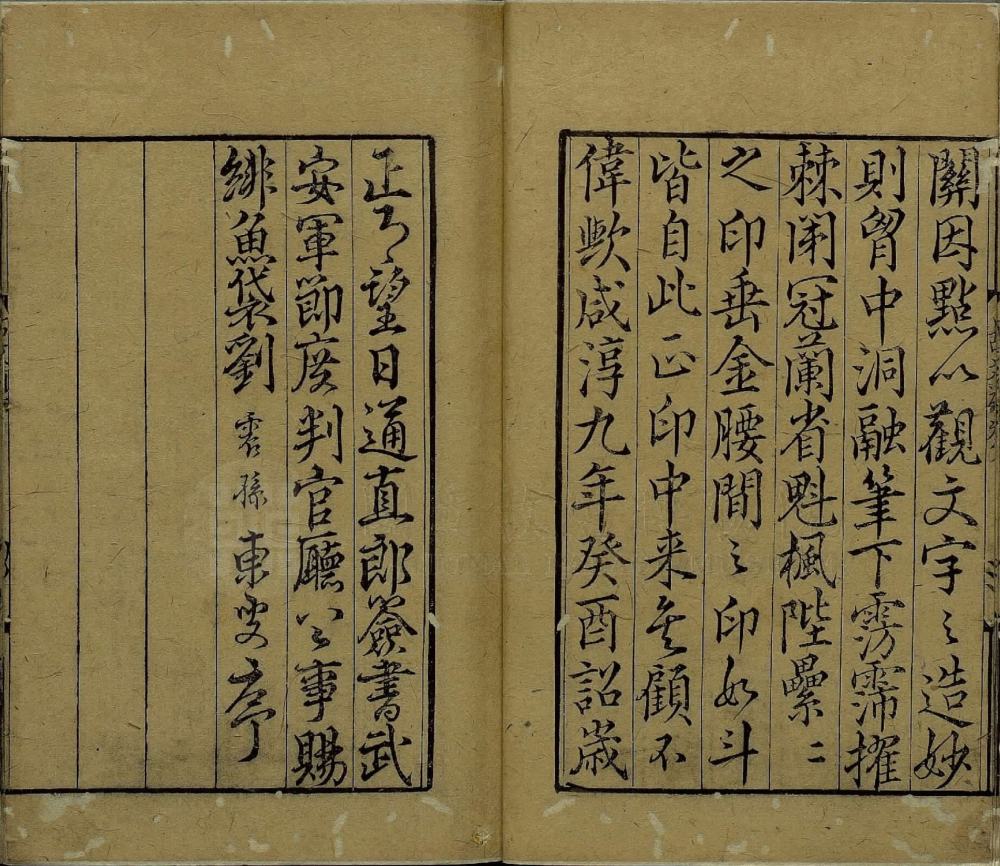 關因點以觀文字之造妙
則胷中洞融筆下霶霈擢
棘闈冠蘭省魁楓陛纍〻
之印垂金腰間之印如斗
皆自此正印中来豈顧不
偉歟咸淳九年癸酉詔歲
正月望日通直郎簽書武
安軍節度判官廳公事賜
緋魚袋劉震孫東叟序